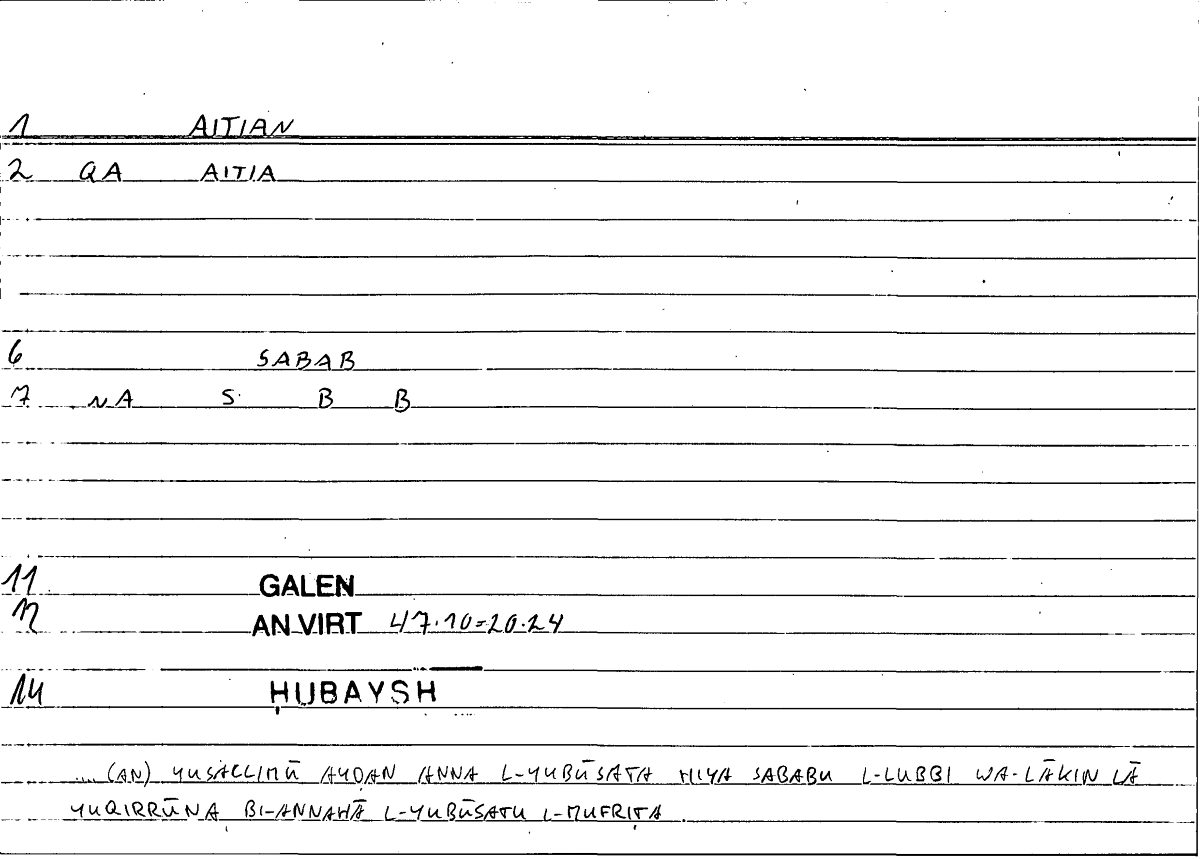 1 AITIAN
2 QA AITIA
6 SABAB
7 NA S B B
11 GALEN
12 AN VIRT 47.10=20.24
14 ḤUBAYSH
... (AN) YUSALLIMŪ AYḌAN ANNA L-YUBŪSATA HIYA SABABU L-LUBBI WA-LĀKIN LĀ
YUQIRRŪNA BI-ANNAHĀ L-YUBŪSATU L-MUFRIṬA.